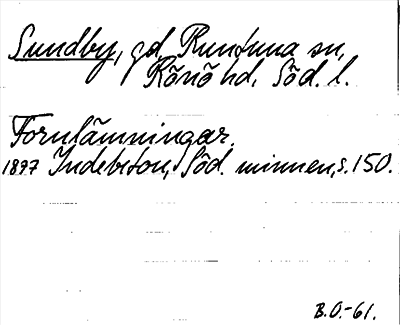 Sundby, gd, Runtuna sn,
Rönö hd, Söd. l.
Fornlämningar.
1897 Indebetou, Söd. minnen, s. 150.
B.O.-61.